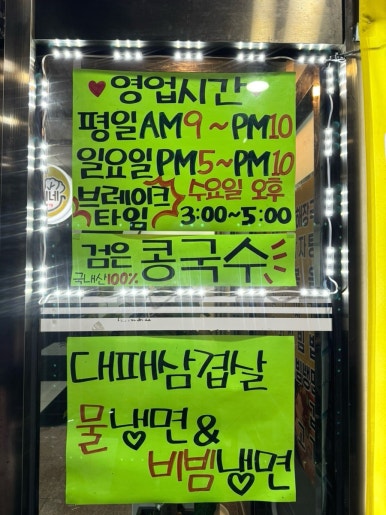 ♥영업시간
평일 AM9~PM10
일요일PM5~PM10
브레이크 수요일 오후
타임 3:00~5:00
검은 콩국수
국내산100%
대패삼겹살
물냉면&
비빔냉면